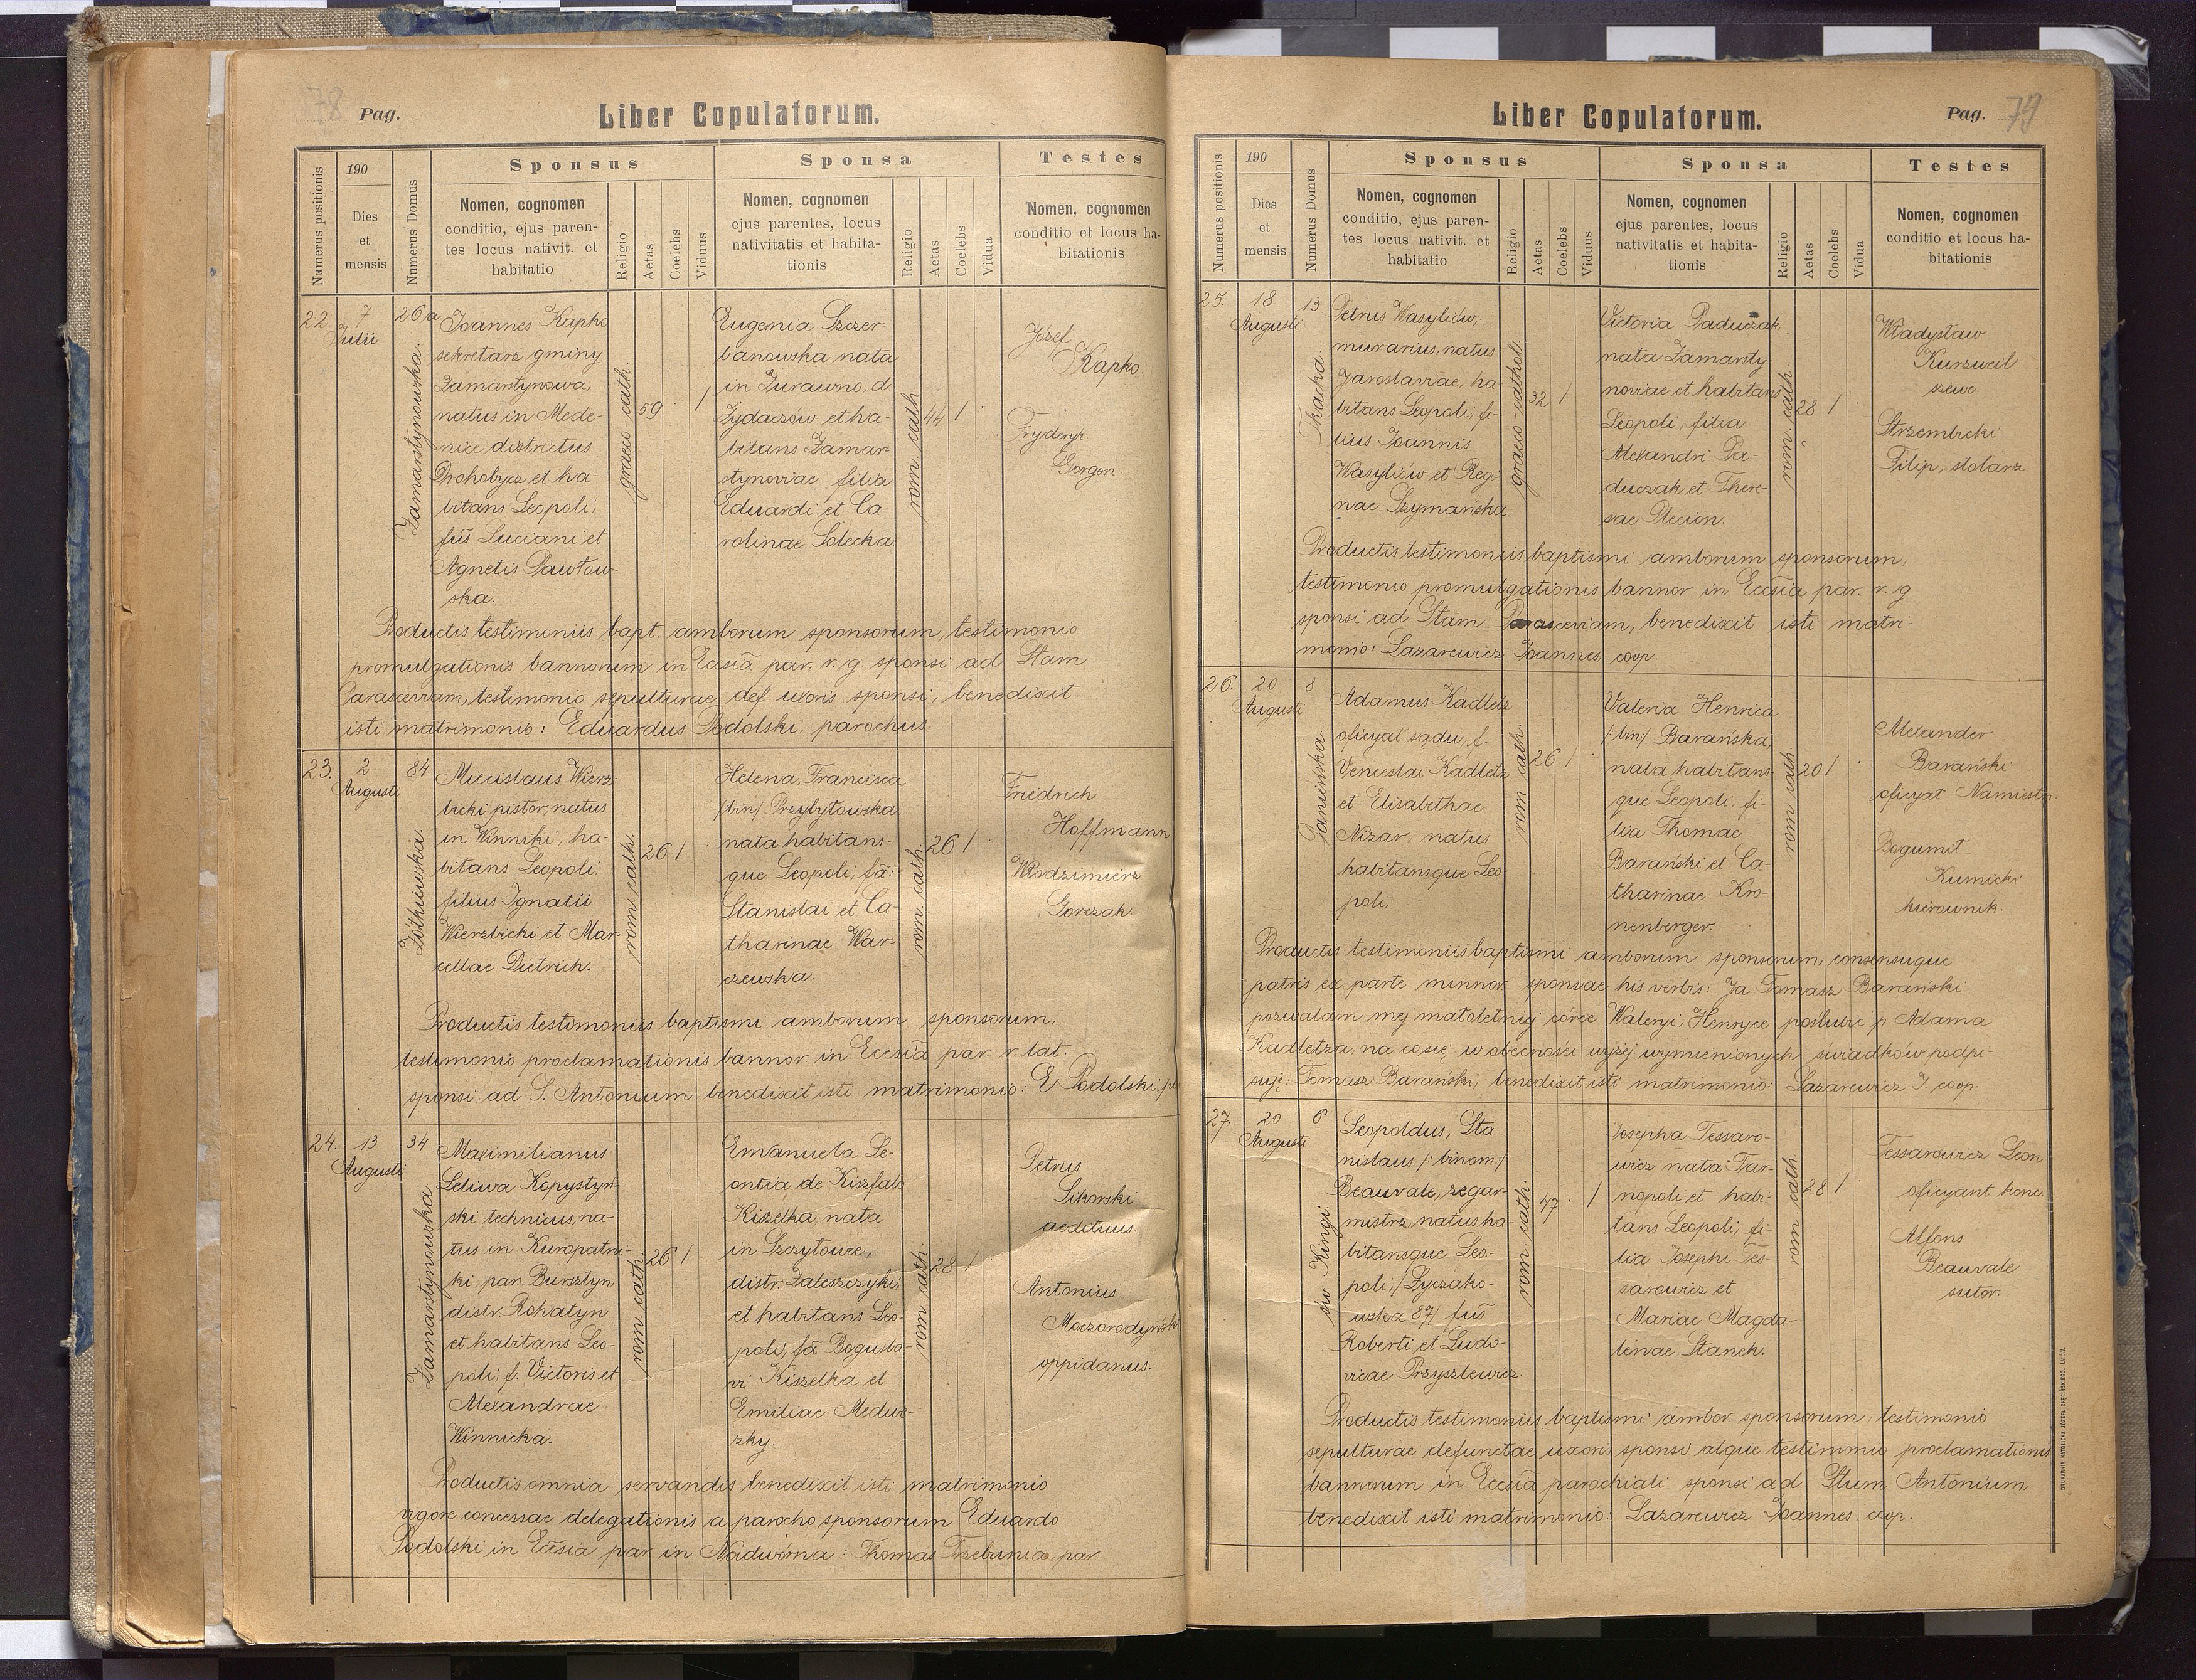 78
Pag.
Liber Copulatorum.
Numerus positionis
190
Dies
et
mensis
Numerus Domus
Sponsus
Nomen, cognomen
conditio, ejus paren-
tes locus nativit. et
habitatio
Religio
Aetas
Coelebs
Viduus
Sponsa
Nomen, cognomen
ejus parentes, locus
nativitatis et habita-
tionis
Religio
Aetas
Coelebs
Vidua
Testes
Nomen, cognomen
conditio et locus ha-
bitationis
22.
7
Julii
26a
Zamarstynowska.
Joannes Kapko
sekretarz gminy
Zamarstynowa,
natus in Mede-
nice, districtus
Drohobycz et ha-
bitans Leopoli;
fũs Luciani et
Agnetis Pawłow-
ska.
graeco-cath.
59
1
Eugenia Szczer-
banowska nata
in Żurawno, d
Żydaczów et ha-
bitans Zamar-
stynoviae, filia
Eduardi et Ca-
rolinae Solecka
rom. cath.
44
1
Józef
Kapko.
Fryderyk
Gorgon
Productis testimoniis bapt. amborum sponsorum, testimonio
promulgationis bannorum in Eccsiã par. r. g. sponsi ad Stam
Parasceviam, testimonio sepulturae def. uxoris sponsi, benedixit
isti matrimonio: Eduardus Podolski, parochus.
23.
2
Augusti
84
Żółkiewska.
Miecislaus Wierz-
bicki pistor, natus
in Winniki, ha-
bitans Leopoli;
filius Ignatii
Wierzbicki et Mar-
cellae Dietrich.
rom. cath.
26
1
Helena, Francisca
(bin) Przybyłowska
nata habitans-
que Leopoli, fã:
Stanislai et Ca-
tharinae War-
czewska.
rom. cath.
26
1
Friedrich
Hoffmann
Włodzimierz
Gorczak
Productis testimoniis baptismi amborum sponsorum,
testimonio proclamationis bannor. in Eccsiã par. r. lat.
sponsi ad S. Antonium benedixit isti matrimonio: E. Podolski, p
24.
13
Augusti
34
Zamarstynowska
Maximilianus
Leliwa Kopystyń-
ski technicus, na-
tus in Kuropatni-
ki, par. Bursztyn
distr. Rohatyn
et habitans Leo-
poli; f. Victoris et
Alexandrae
Winnicka.
rom. cath.
26
1
Emanuela Le-
ontia de Kiszfalo
Kiszelka, nata
in Szczytowce,
distr. Zaleszczyki
et habitans Leo-
poli, fã Bogusla-
vi Kiszelka et
Emiliae Medwe-
zky.
rom. cath.
28
1
Petrus
Sikorski
aedituus.
Antonius
Moczorodyński
oppidanus.
Productis omnia servandis benedixit isti matrimonio
vigore concessae delegationis a parocho sponsorum Eduardo
Podolski in Eccsia par. in Nadwórna: Thomas Trzebunia, par.
Liber Copulatorum.
Pag.
79
Numerus positionis
190
Dies
et
mensis
Numerus Domus
Sponsus
Nomen, cognomen
conditio, ejus paren-
tes locus nativit. et
habitatio
Religio
Aetas
Coelebs
Viduus
Sponsa
Nomen, cognomen
ejus parentes, locus
nativitatis et habita-
tionis
Religio
Aetas
Coelebs
Vidua
Testes
Nomen, cognomen
conditio et locus ha-
bitationis
25.
18
Augusti
13
Tkacka
Petrus Wasyliów,
murarius, natus
Jaroslaviae, ha
bitans Leopoli, fi-
lius Joannis
Wasyliów et Regi
nae Szymańska.
graeco-cathol.
32
1
Victoria Paduczak
nata Zamarsty
noviae et habitans
Leopoli, filia
Alexandri Pa-
duczak et There-
sae Plecion.
rom. cath
28
1
Władysław
Kurzweil
szewc
Strzembicki
Filip, stolarz
Productis testimoniis baptismi amborum sponsorum,
testimonio promulgationis bannor. in Eccsia par. r. g
sponsi ad Stam Parasceviam, benedixit isti matri-
monio: Lazarewicz Joannes, coop.
26.
20
Augusti
8
Panieńska.
Adamus Kadletz
oficyał sądu, f.
Venceslai Kadletz
et Elisabethae
Nizar, natus
habitansque Leo
poli;
rom. cath.
26
1
Valeria Henrica
/:bin:/ Barańska,
nata habitans-
que Leopoli, fi-
lia Thomae
Barański et Ca-
tharinae Kro-
nenberger
rom. cath.
20
1
Alexander
Barański
oficyał Namiestn.
Bogumił
Kumicki
kierownik.
Productis testimoniis baptismi amborum sponsorum, consensuque
patris ex parte minnor. sponsae his verbis: Ja Tomasz Barański
pozwalam mej małoletniej córce Waleryi, Henryce poślubić p. Adama
Kadletza, na co się w obecności wyżej wymienionych świadków podpi-
suję: Tomasz Barański, benedixit isti matrimonio: Lazarewicz J. coop.
27.
20
Augusti
6
św. Kingi.
Leopoldus, Sta
nislaus /:binom:/
Beauvale, zegar-
mistrz, natus ha
bitansque Leo-
poli, /Łyczako-
wska 87/ fũs
Roberti et Ludo-
vicae Przyszlewicz
rom. cath.
47
1
Josepha Tessaro-
wicz nata Tar-
nopoli et habi-
tans Leopoli, fi-
lia Josephi Tes-
sarowicz et
Mariae Magda-
lenae Stanek.
rom. cath.
28
1
Tessarowicz Leon
oficyant konc.
Alfons
Beauvale
sutor.
Productis testimoniis baptismi ambor. sponsorum, testimonio
sepulturae defunctae uxoris sponsi atque testimonio proclamationis
bannorum in Eccsia parochiali sponsi ad Stum Antonium
benedixit isti matrimonio: Lazarewicz Joannes. coop.